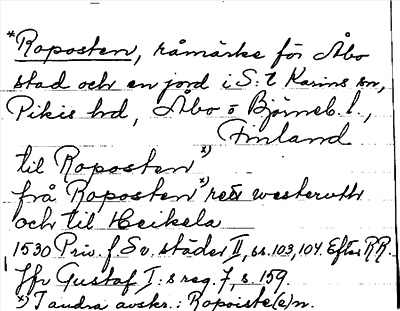 *Roposten, råmärke för Åbo
stad och en jord i S:t Karins sn,
Pikis hd, Åbo o Björneb. l.,
Finland
til Roposten *)
frå Roposten *) rett westervthr
och til Heikela
1530 Priv. f Sv. städer II, ss. 103, 104. Efter RR.
Jfr Gustaf I:s reg. 7, s. 159.
*) I andra avskr.: Ropoiste(e)n.